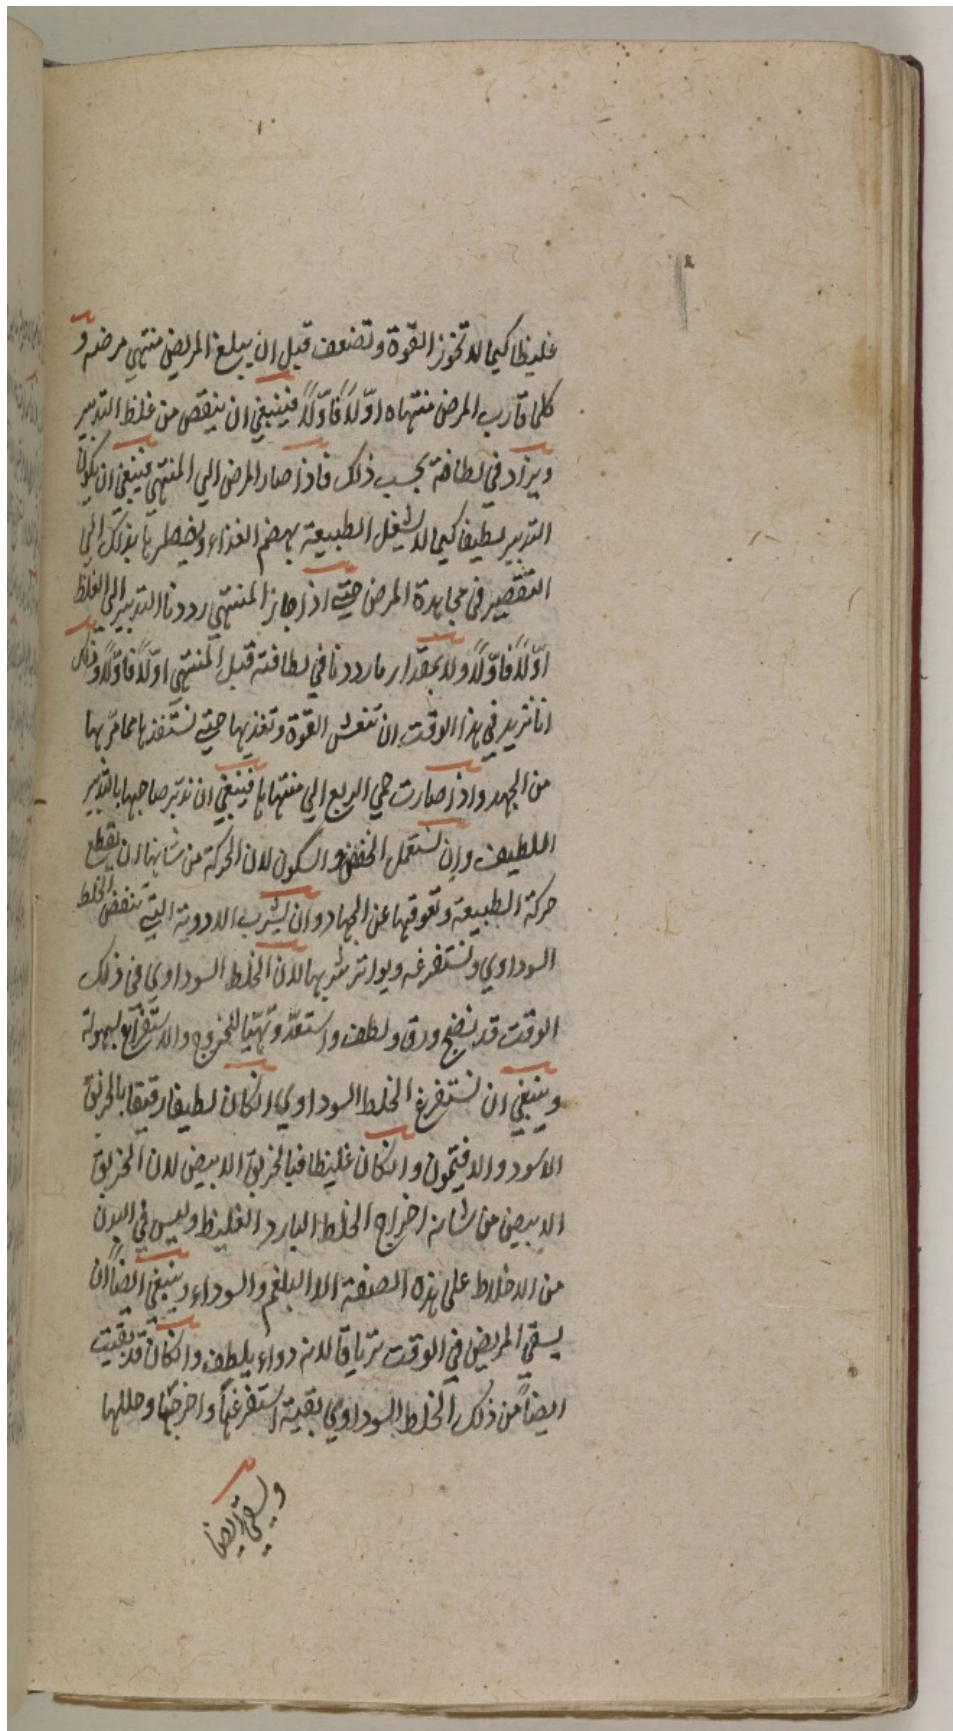 غليظا كيما لا تخور القوة وتضعف قبل ان يبلغ المريض منتهي مرضه و
كلما قارب المرض منتهاه اوّلاً فاوّلاً فينبغي ان ينقص من غلظ التدبير
ويزاد في لطافة بحسب ذلك فاذا صار المرض الي المنتهي فينبغي ان يكون
التدبير لطيفا كيما لا يشغل الطبيعة بهضم الغذاء ويضطرها بذلك الي
التقصير في مجاهدة المرض حتي اذا جاز المنتهي رددنا التدبير الي الغلظ
اوّلاً فاوّلاً ولا بمقدار ما رددنا في لطافته قبل المنتهي اوّلاً فاوّلاً وذلك
انا نريد في هذا الوقت ان تنعش القوة وتغذيها حتي نستنفذها مما مرّ بها
من الجهد واذا صارت حمي الربع الي منتهاها فينبغي ان ندبّر صاحبها بالتدبير
اللطيف وان نستعمل الخفض والسكون لان الحركة من شانها ان يقطع
حركة الطبيعة وتعوقها عن الجهاد وان يشرب الادوية التي تنفض الخلط
السوداوي ونستفرغه ويواتر شربها لان الخلط السوداوي في ذلك
الوقت قد نضج ورق ولطف واستعدّ وتهيّا للخروج والاستفراغ بسهولة
وينبغي ان نستفرغ الخلط السوداوي ان كان لطيفا رقيقا بالخربق
الاسود والافتيمون وان كان غليظا فبالخربق الابيض لان الخربق
الابيض من شانه اخراج الخلط البارد الغليظ وليس في البدن
من الاخلاط علي هذه الصفة الا البلغم والسوداء وينبغي ايضاً ان
يسقي المريض في الوقت ترياقا لانه دواء يلطف وان كان قد بقيت
ايضاً من ذلك الخلط السوداوي بقية استفرغها واخرجها وحللها
ويسقي ايضا